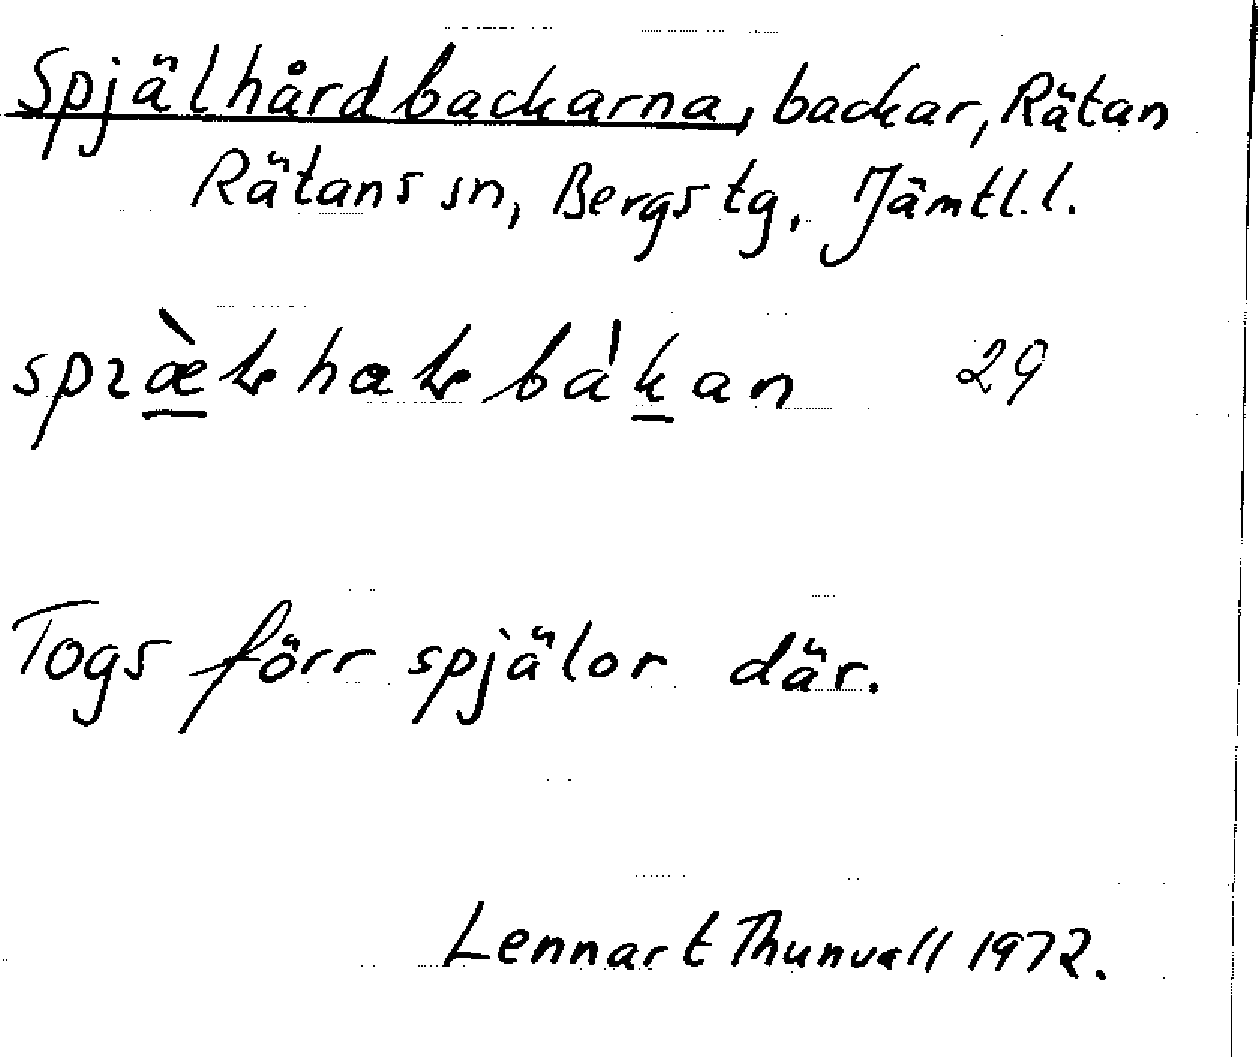 Spjälhårdbackarna, backar, Rätan
Rätans sn, Bergs tg, Jämtl. l.
29
Togs förr spjälor där.
Lennart Thunvall 1972.